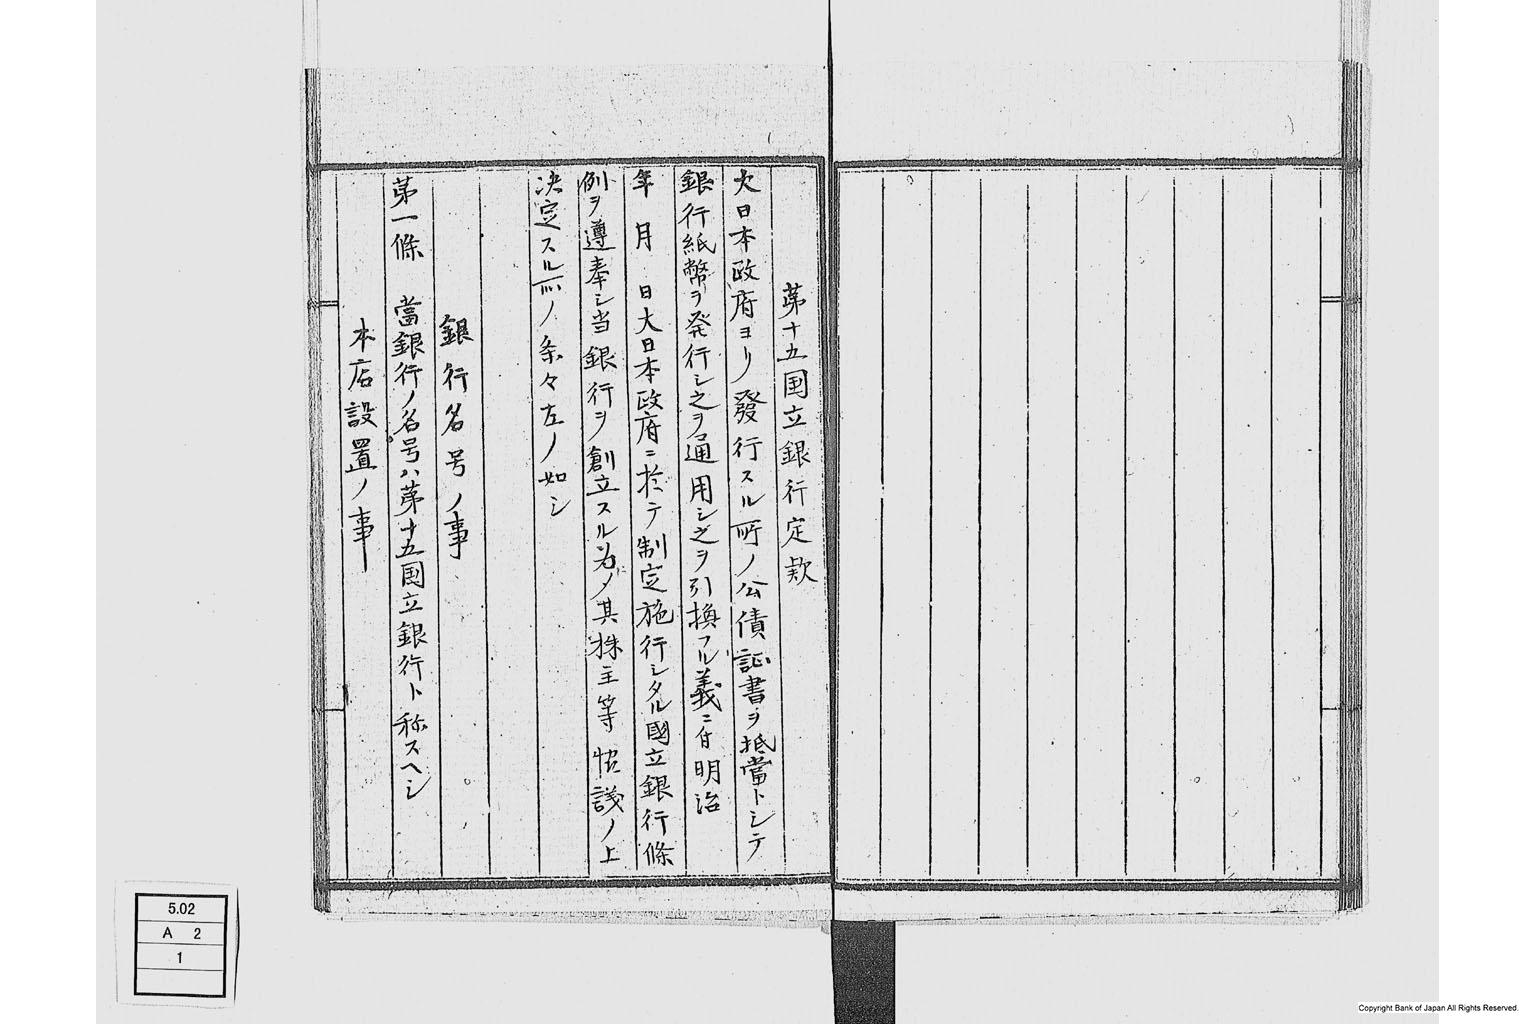 第十五国立銀行定款
大日本政府ヨリ發行スル所ノ公債証書ヲ抵當トシテ
銀行紙幣ヲ発行シ之ヲ通用シ之ヲ引換フル義ニ付明治
年 月 日大日本政府ニ於テ制定施行シタル國立銀行條
例ヲ遵奉シ当銀行ヲ創立スル為ノ其株主等協議ノ上
决定スル所ノ条々左ノ如シ
銀行名号ノ事
第一條 當銀行ノ名号ハ第十五国立銀行ト称スヘシ
本店設置ノ事
5.02
A 2
1
Copyright Bank of Japan All Rights Reserved.